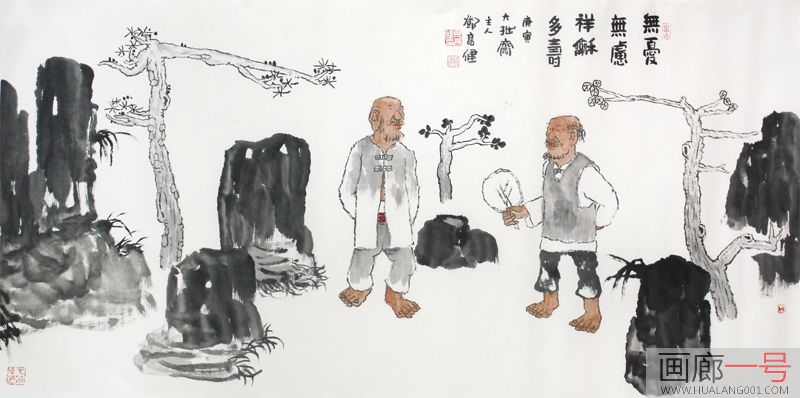 無憂
無慮
祥龢
多壽
庚寅
大拙齋
主人
鄧富健
画廊一号
WWW.HUALANG001.COM